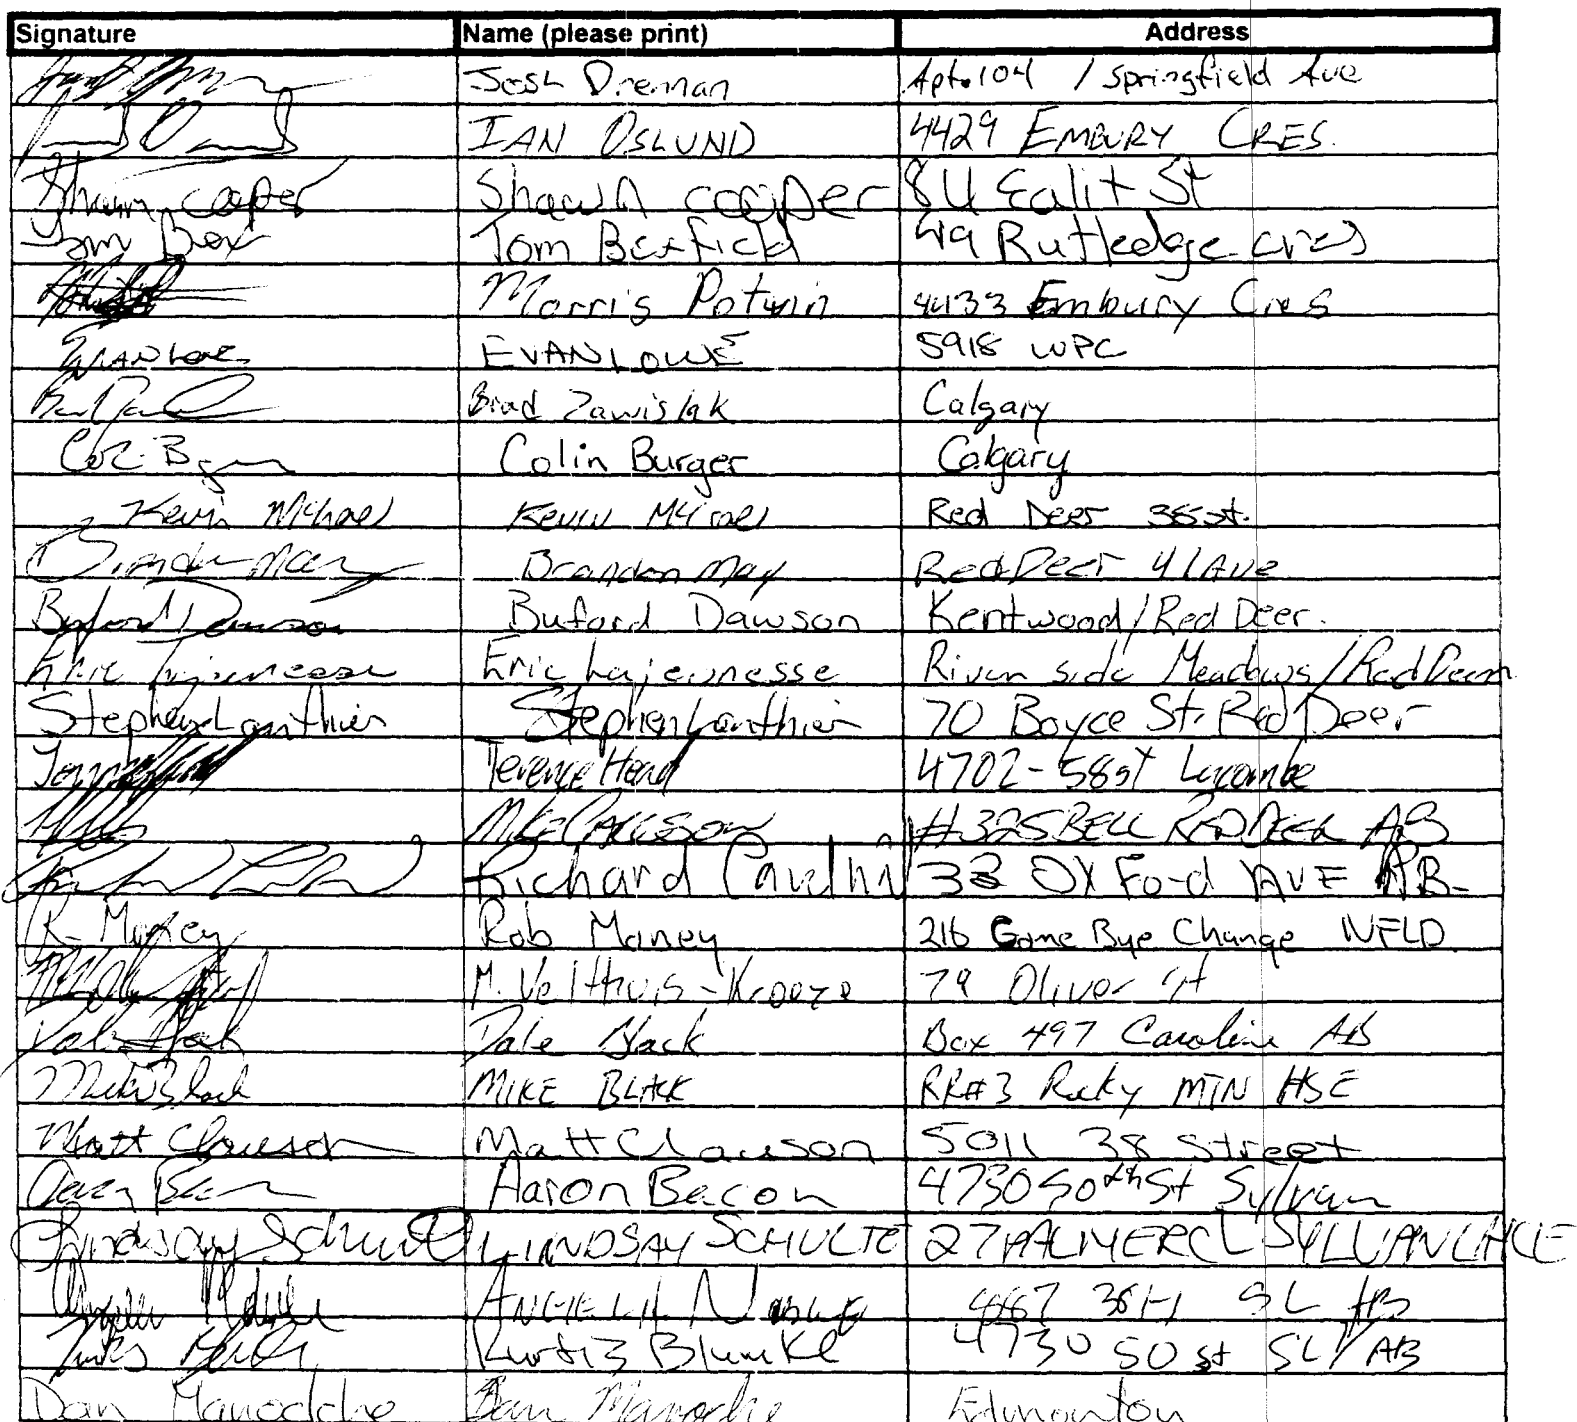 Signature Name (please print) Address
Josh Drennan Apt. 104 / Springfield Ave
IAN OSLUND 4429 EMBURY CRES.
Shawn cooper Shawn cooper St
Tom Box Tom Boxfield 49 Rutledge cres
Morris Potwin 4433 Embury Cres
EVAN LOWE EVAN LOWE 5918 WPC
Brad Zawislak Calgary
Colin Burger Calgary
Kevin Michael Kevin Red Deer 38 st.
Brandon May Red Deer 41 Ave
Buford Dawson Buford Dawson Kentwood/Red Deer.
Eric Lajeunesse Eric Lajeunesse River side Meadows/Red Deer
Stephen Lanthier Stephen Lanthier 70 Boyce St. Red Deer
Terence Head 4702-58 st Lacombe
MIKE #325 BELL RED DEER AB
Richard 33 OX Ford AVE AB-
R. Maney Rob Maney 216 Gome Bye Change NFLD.
M. Velthuis-Krooze 79 Oliver St
Dale Black Dale Black Box 497 Caroline AB
Mike Black MIKE BLACK RR#3 Rocky MTN HSE
Matt Clawson Matt Clawson 5011 38 Street
Aaron Bacon 4730 50th St Sylvan
Lindsay Schulte LINDSAY SCHULTE 27 PALMER CL SYLVAN LAKE
SL AB
Kurtiz Blumke 4730 50 st SL/AB
Dan Dan Edmonton